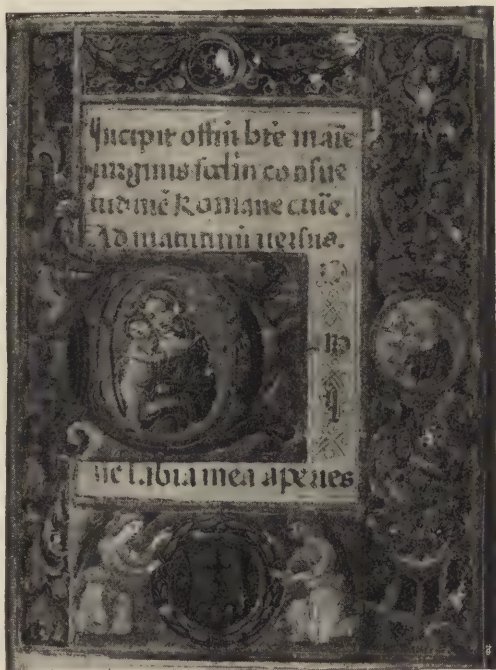 Incipit offiū btē marīe
uirginis scdm consue
tudinē Romane curīe.
Ad matutinū uersus.
D
o
m
i
ne labia mea aperies